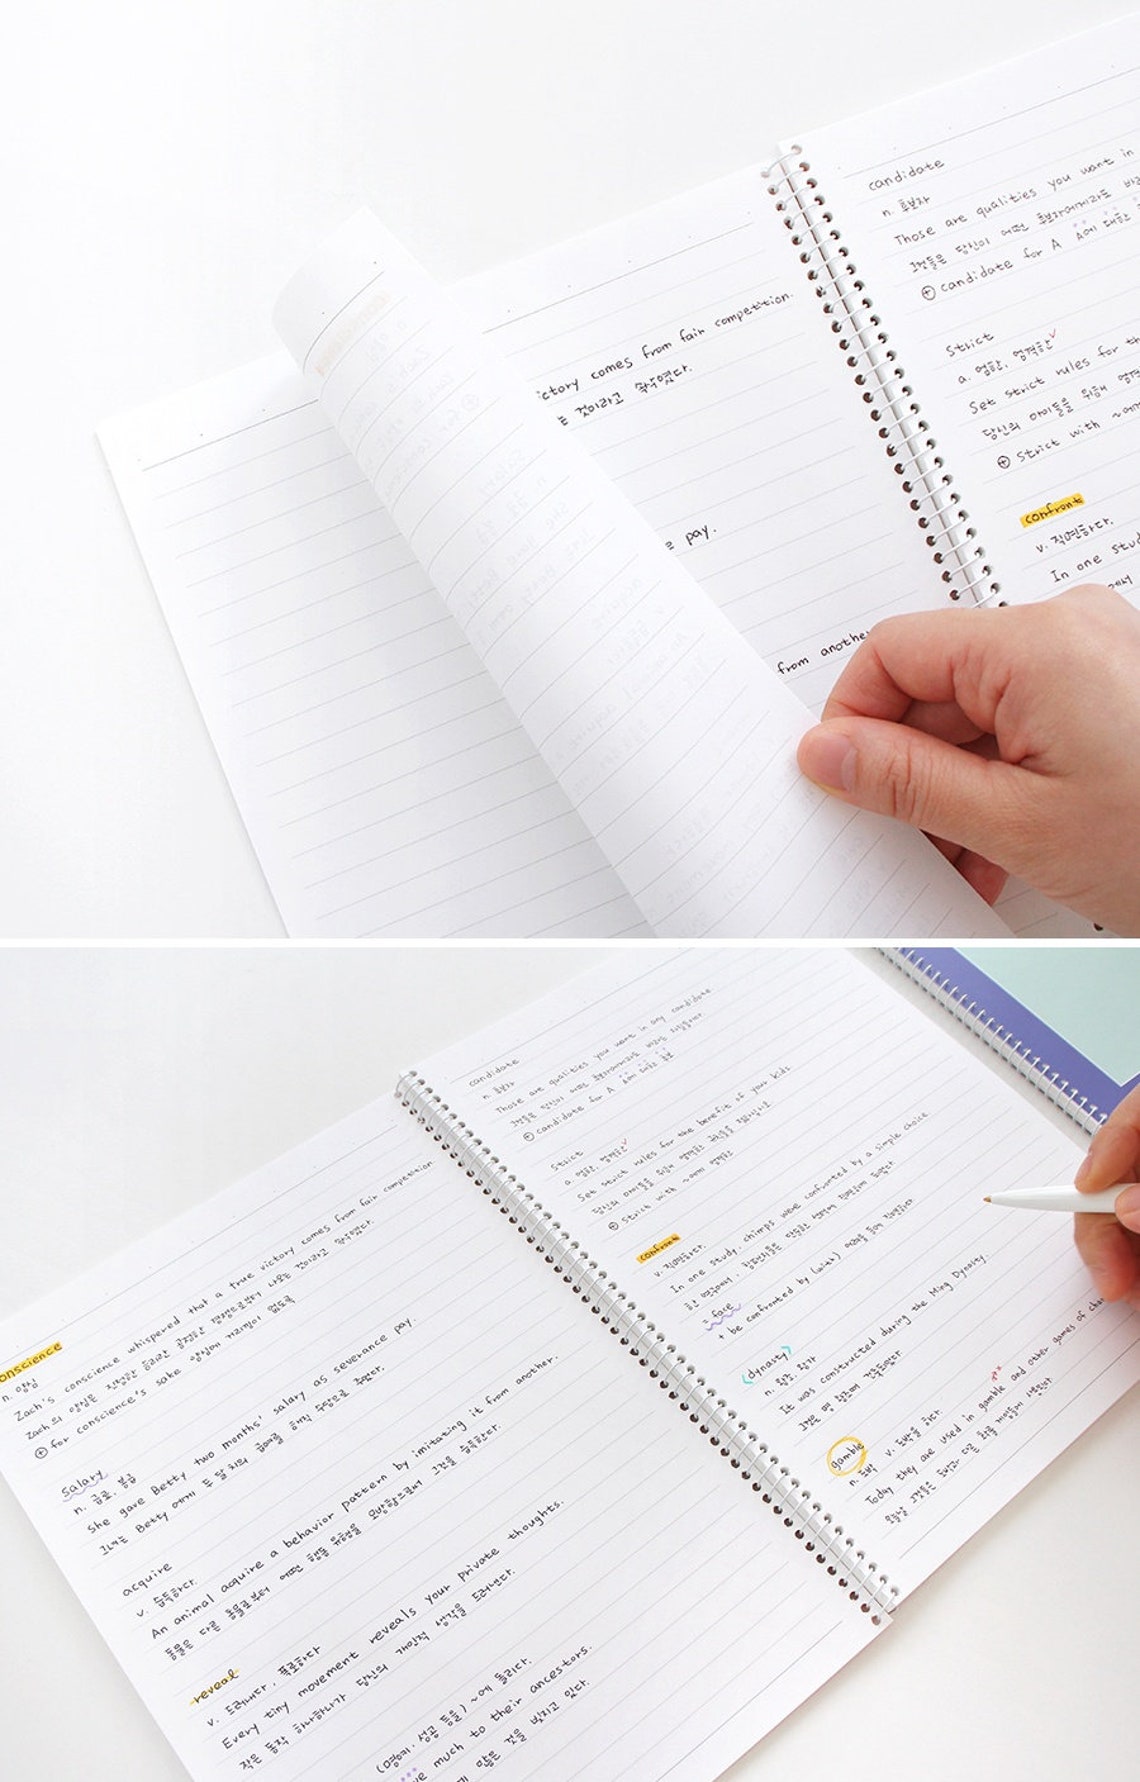 candidate
n. 후보자
Those are qualities you want in
그것들은 당신이 어떤 후보자에게라도 바라
⊕ candidate for A A에 대한
ictory comes from fair competition.
는 것이라고 속삭였다.
strict
a. 엄한, 엄격한
Set strict rules for th
당신의 아이들을 위해 엄격
⊕ strict with ~에게
confront
v. 직면하다.
In one stud
에서
e pay.
from anothe
onscience
n. 양심
Zach's conscience whispered that a true victory comes from fair competition.
Zach의 양심은 진정한 승리란 공정한 경쟁으로부터 나오는 것이라고 속삭였다.
⊕ for conscience's sake 양심에 거리낌이 없도록
salary
n. 급료, 봉급
She gave Betty two months' salary as severance pay.
그녀는 Betty 에게 두 달 치의 급여를 해직 수당으로 주었다.
acquire
v. 습득하다.
An animal acquire a behavior pattern by imitating it from another.
동물은 다른 동물로부터 어떤 행동 유형을 모방함으로써 그것을 습득한다.
reveal
v. 드러내다, 폭로하다
Every tiny movement reveals your private thoughts.
작은 동작 하나하나가 당신의 개인적 생각을 드러낸다.
(명예·성공 등을) ~에 돌리다.
ve much to their ancestors.
에게 많은 것을 빚지고 있다.
candidate
n. 후보자
Those are qualities you want in any candidate.
그것들은 당신이 어떤 후보자에게라도 바라는 자질들이다.
⊕ candidate for A A에 대한 후보
strict
a. 엄한, 엄격한
Set strict rules for the benefit of your kids
당신의 아이들을 위해 엄격한 규칙들을 정하십시오.
⊕ strict with ~에게 엄격한
confront
v. 직면하다.
In one study, chimps were confronted by a simple choice
한 연구에서, 침팬지들은 단순한 선택에 직면하게 되었다
= face
+ be confronted by (with)
<dynasty>
n. 왕조, 왕가
It was constructed during the Ming Dynasty.
그것은 명 왕조에 건축되었다.
gamble
n. 도박 v. 도박을 하다.
Today they are used in gamble and other games of chan
오늘날 그것들은 도박과 다른 확률 게임들에 사용된다.